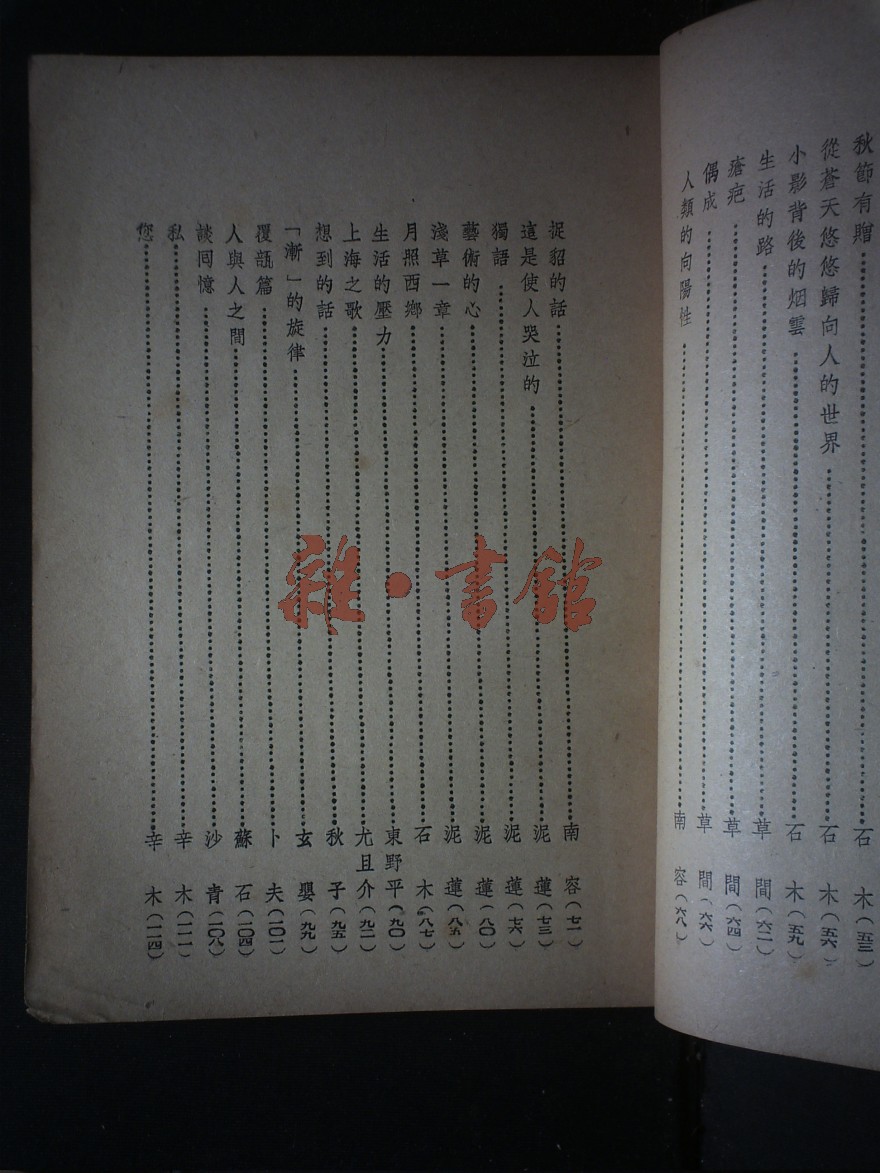 秋節有贈 石木(五三)
從蒼天悠悠歸向人的世界 石木(五六)
小影背後的烟雲 石木(五九)
生活的路 草間(六二)
瘡疤 草間(六四)
偶成 草間(六六)
人類的向陽性 南容(六八)
捉貂的話 南容(七一)
這是使人哭泣的 泥蓮(七三)
獨語 泥蓮(七六)
藝術的心 泥蓮(八〇)
淺草一章 泥蓮(八五)
月照西鄉 石木(八七)
生活的壓力 東野平(九〇)
上海之歌 尤且介(九二)
想到的話 秋子(九五)
「漸」的旋律 玄嬰(九九)
覆瓿篇 卜夫(一〇一)
人與人之間 蘇石(一〇四)
談回憶 沙青(一〇八)
私 辛木(一一一)
您 辛木(一一四)
雜·書館